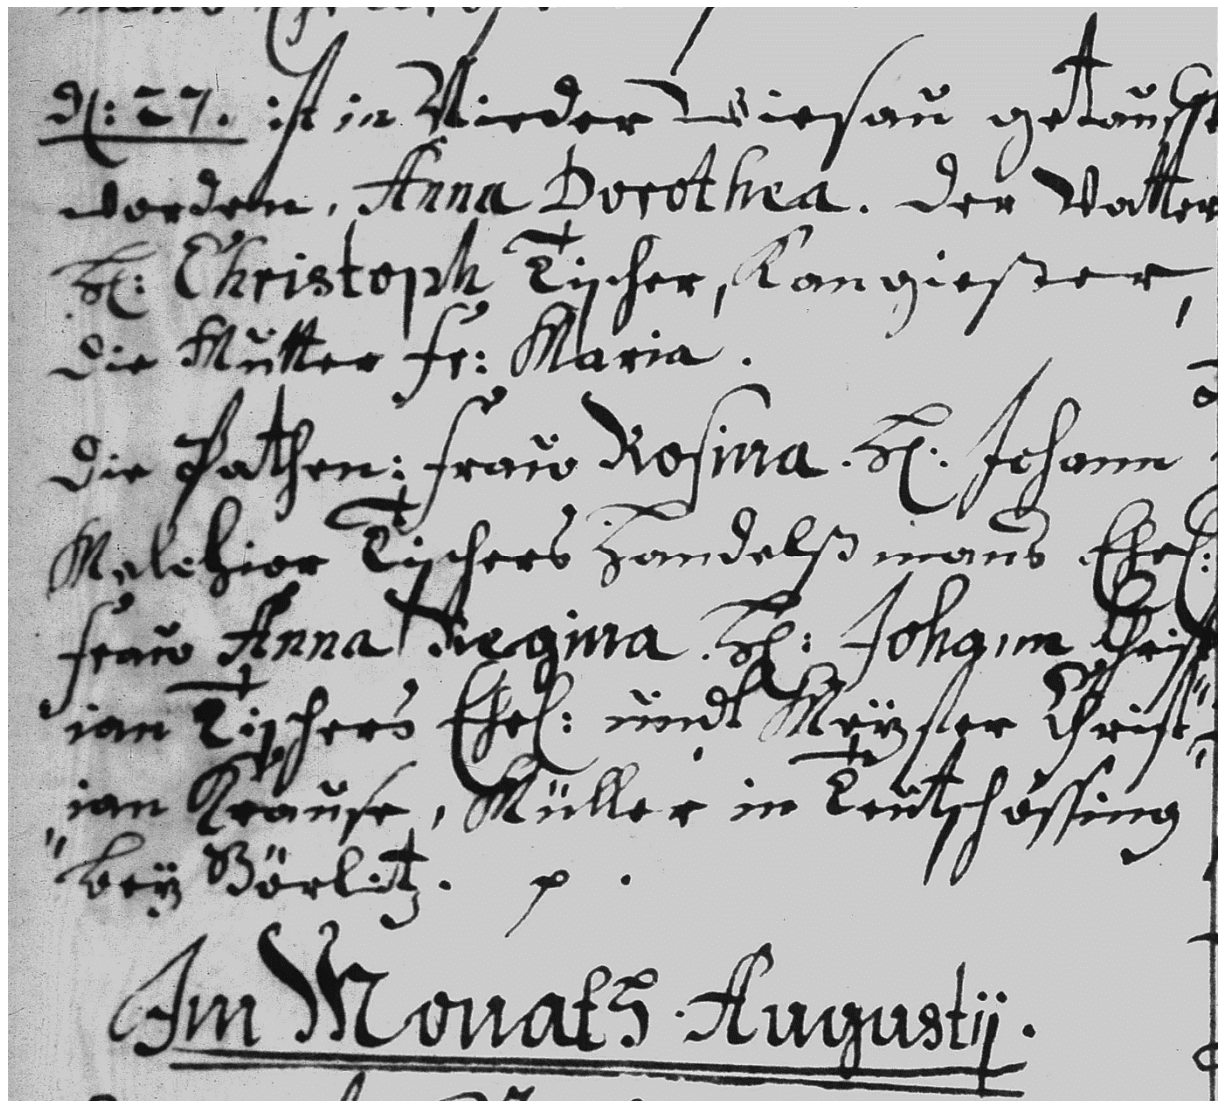 d[en]: 27. ist in Nieder Wiesau getaufft
worden, Anna Dorothea. der Vatter
H[err]: Christoph Tischer, Kangießer,
die Mutter fr: Maria.
die Pathen: fraw Rosina H[err]: Johann
Melchior Tischers Handelßmans Ehel:
fraw Anna Regina H[err]: Johann Christ
ian Tischers Ehel: undt Meÿster Christ
ian Krause, Müller in Teutschossing
beÿ Görlitz. p.
Im Monath Augustij.